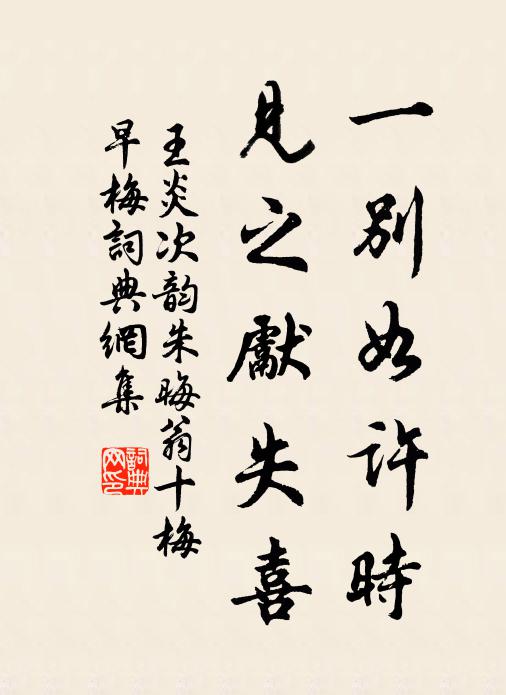 一別如許時
見之獻失喜
王炎次韵朱晦翁十梅
早梅詞典網集
詞典
网印